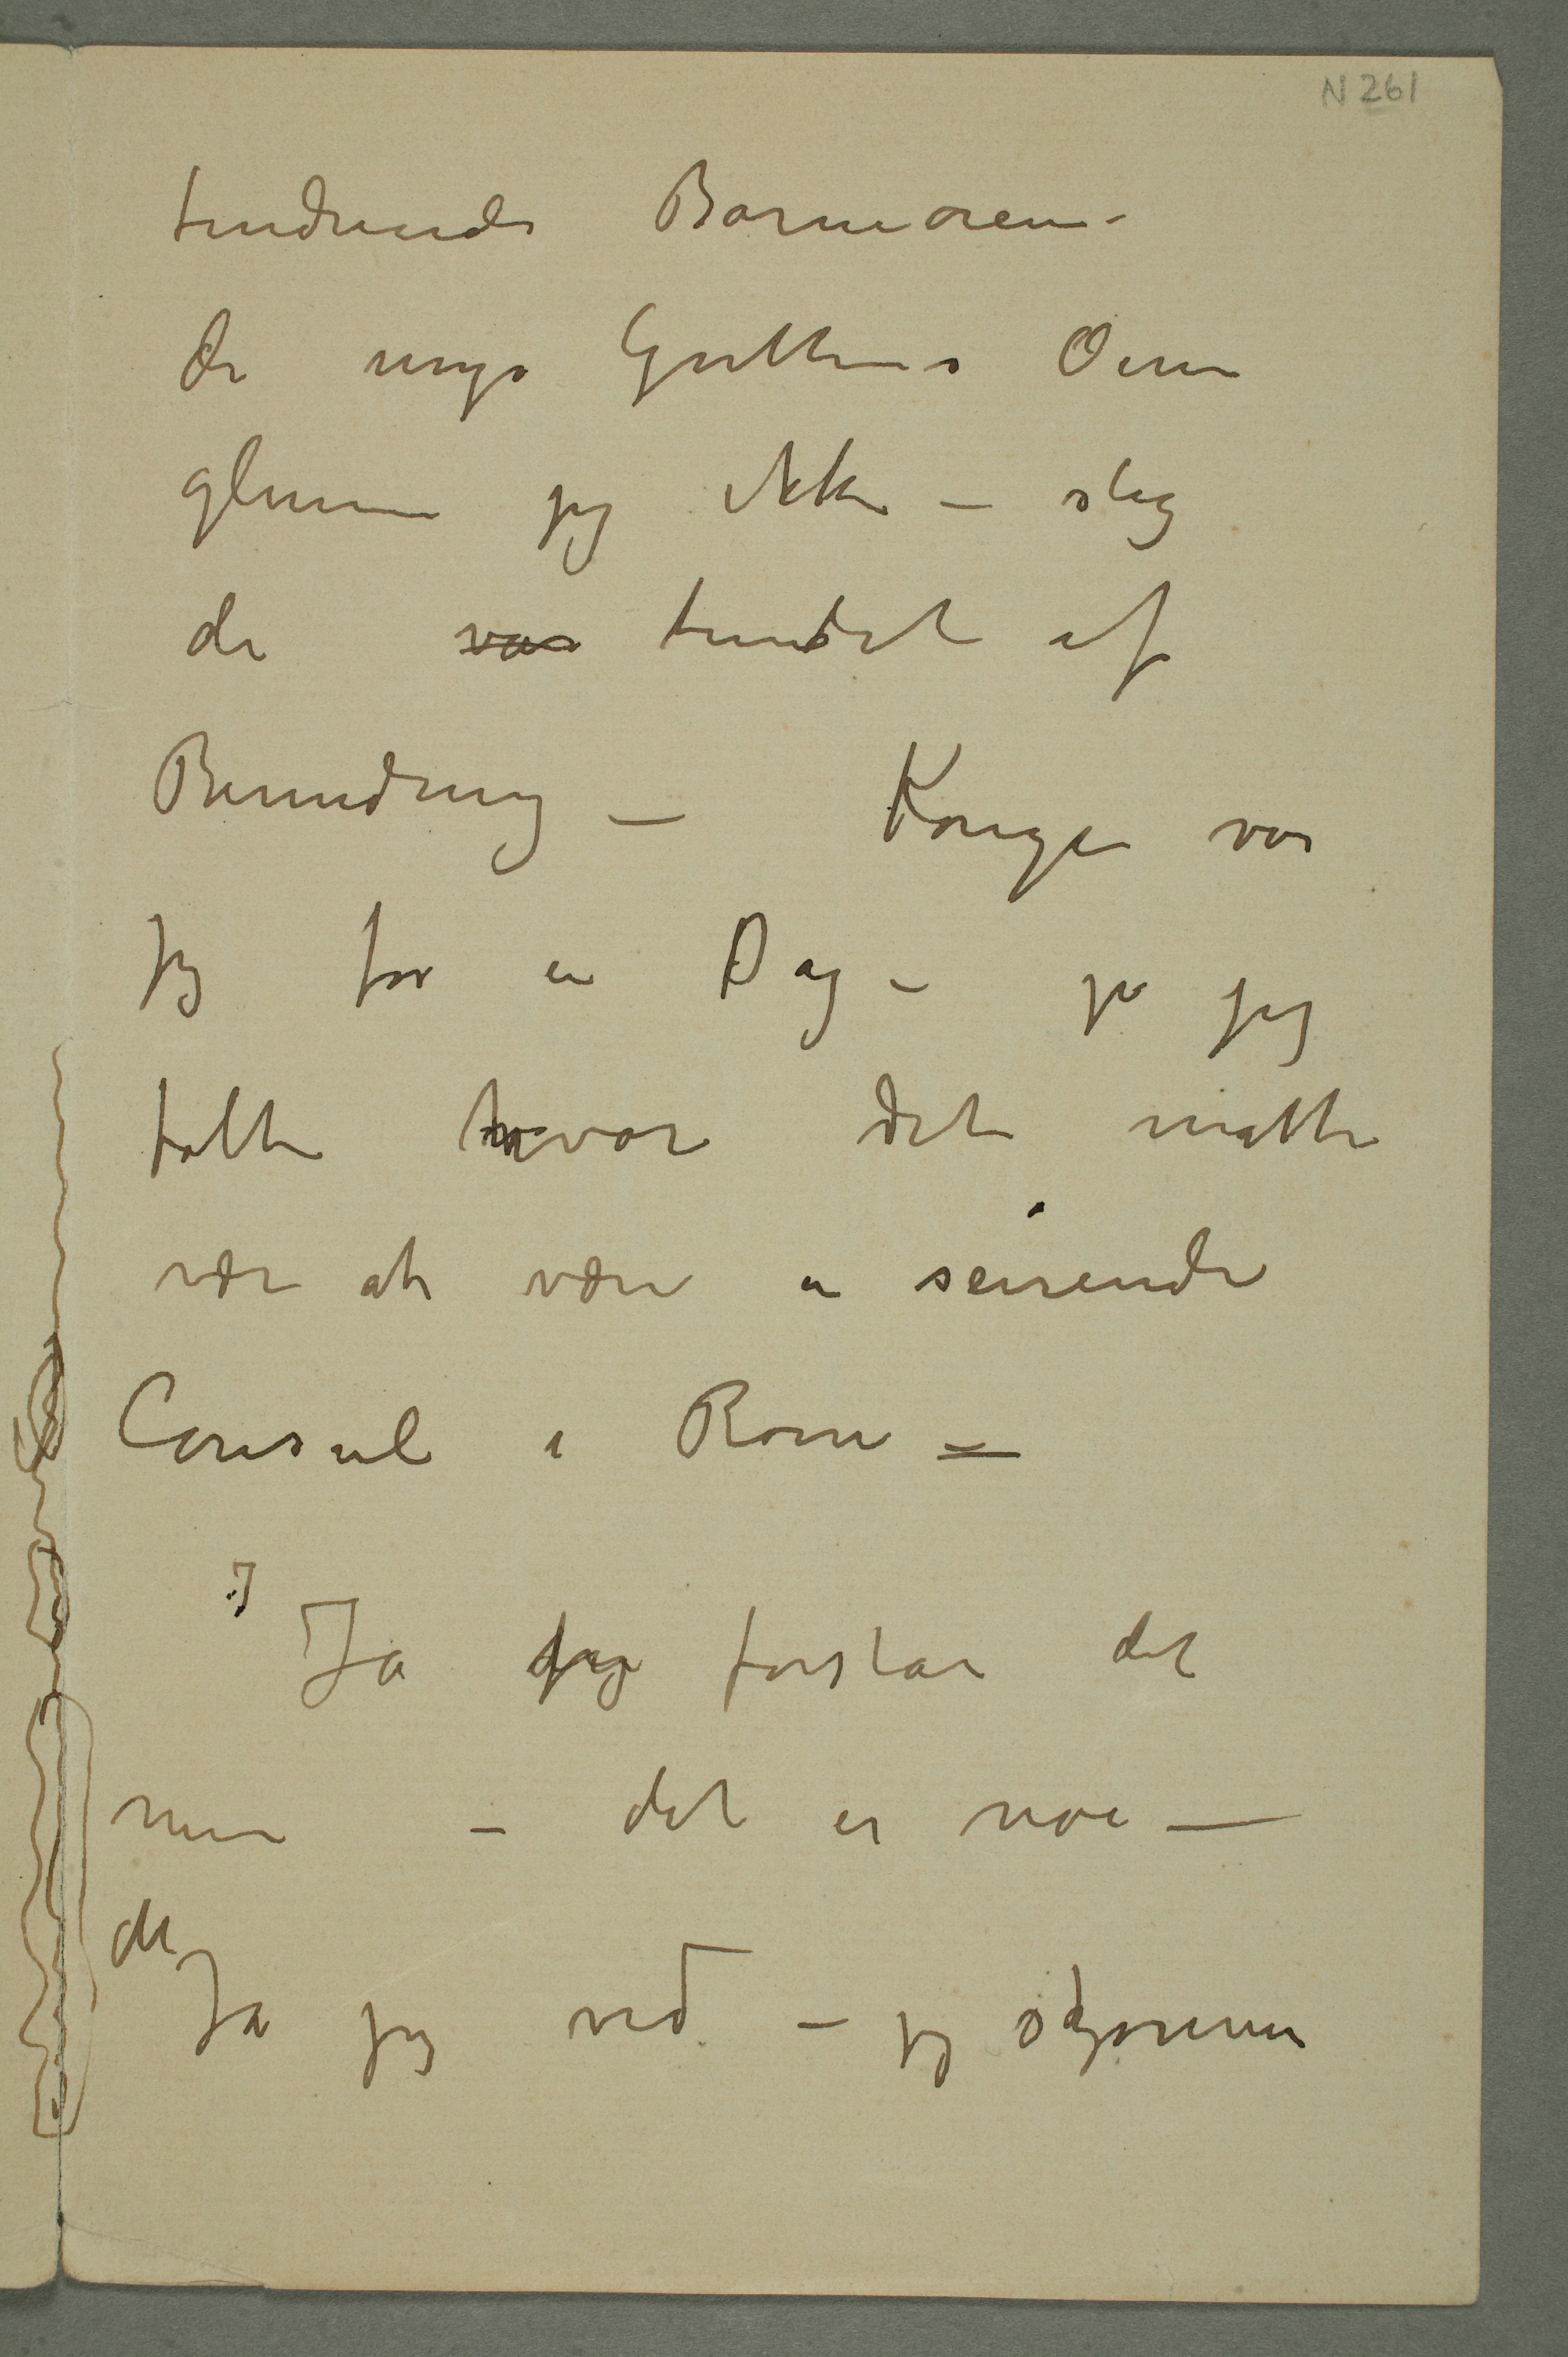 N 261
tindrende Barneøren –
de unge Gutternes Øine
glemmer jeg ikke – slig
de var tindret af
Beundring – Kongen var
jeg for en Dag – ja jeg
følte hvor det måtte
være at være en seirende
Consul i Rom –
J
Ja jeg forstår det
men – det er noe –
M
Ja jeg ved – jeg skjønner